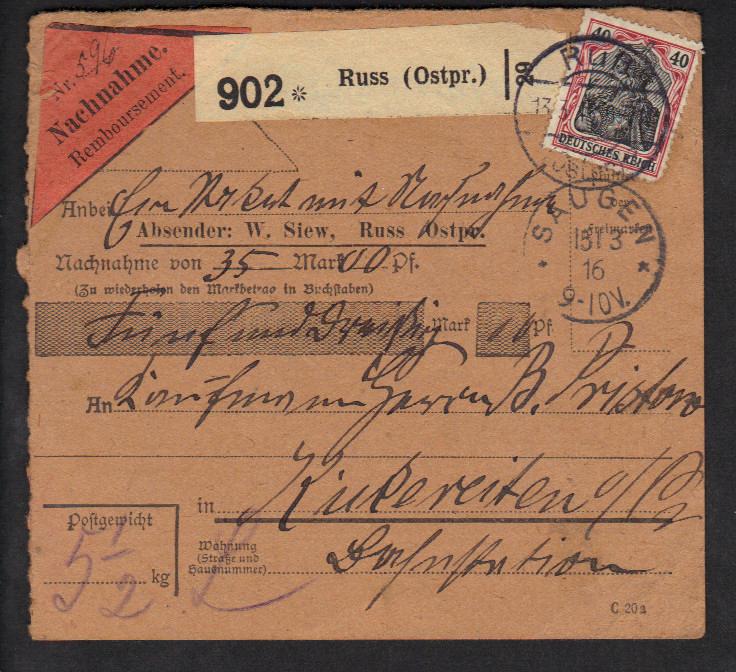 Nr. 596
Nachnahme.
Remboursement.
902 * Russ (Ostpr.)
29
40 40
DEUTSCHES REICH
RUSS
13
SAUGEN
15 1 3
16
9-10V.
Freimarken
Anbei Ein Paket mit Nachnahme
Absender: W. Siew, Russ Ostpr.
Nachnahme von 35 Mark 00 Pf.
(Zu wiederholen den Markbetrag in Buchstaben)
Fünf und Dreißig Mark Pf.
An Kaufmann Herrn B.
in
Bahnstation
Postgewicht
5 1/2 kg
Wohnung
(Straße und
Hausnummer)
C 20a